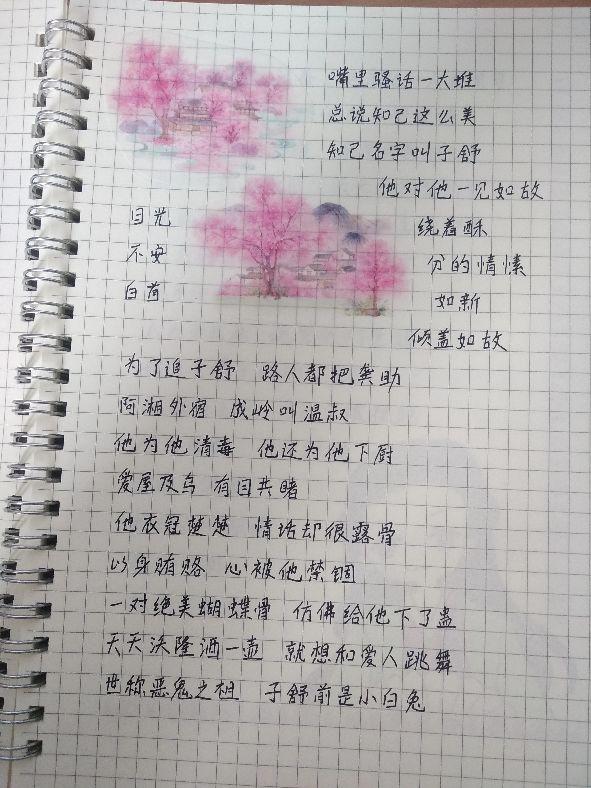 嘴里骚话一大堆
总说知己这么美
知己名字叫子舒
他对他一见如故
目光
绕着酥
不安
分的情愫
白首
如新
倾盖如故
为了追子舒 路人都把龚助
阿湘外宿 成岭叫温叔
他为他消毒 他还为他下厨
爱屋及乌 有目共睹
他衣冠楚楚 情话却很露骨
以身贿赂 心被他禁锢
一对绝美蝴蝶骨 仿佛给他下了蛊
天天沃隆酒一壶 就想和爱人跳舞
世称恶鬼之祖 子舒前是小白兔